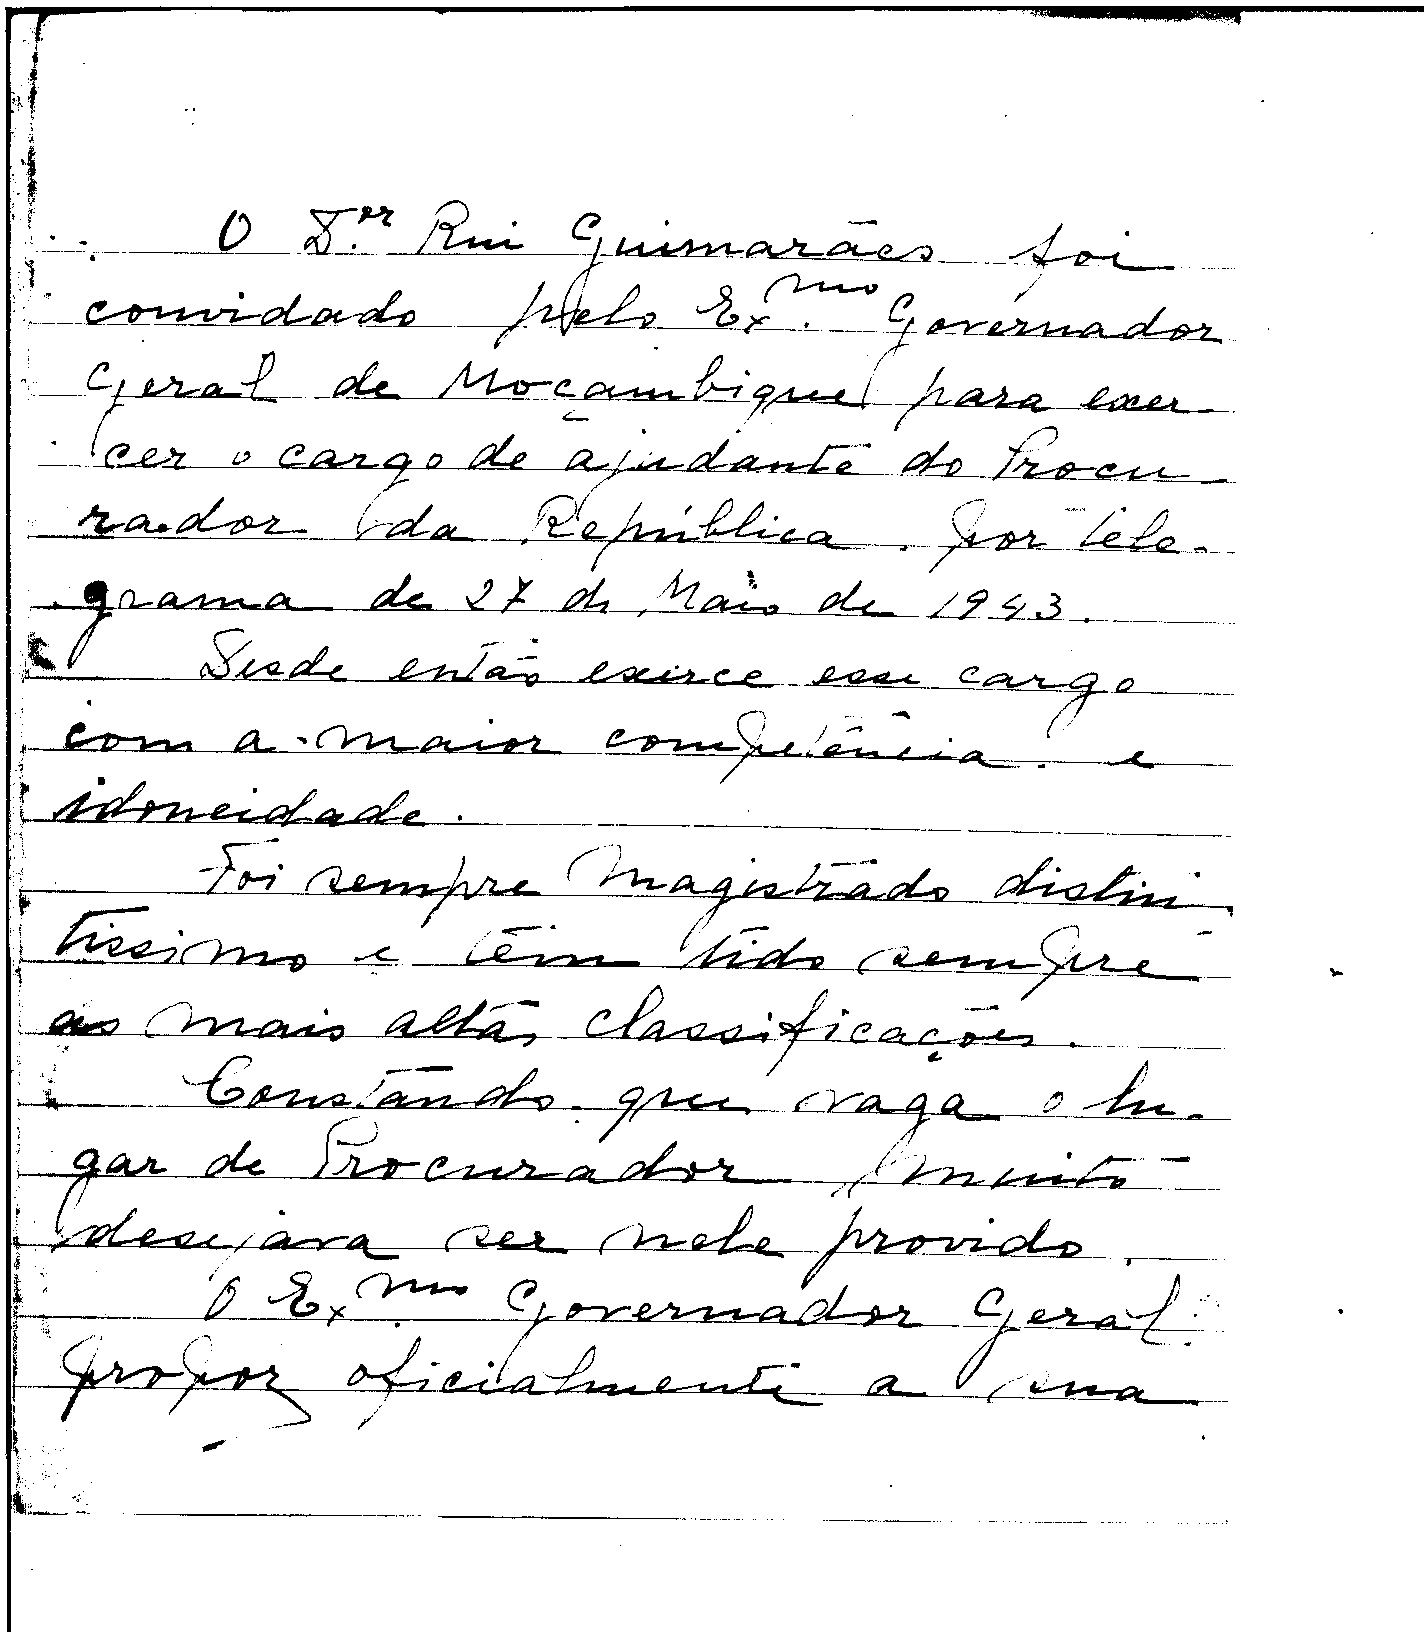 O D.or Rui Guimarães foi
convidado pelo Ex.mo Governador
Geral de Moçambique para exer-
cer o cargo de ajudante do Procu-
rador da República. por tele-
grama de 27 de Maio de 1943.
Desde então exerce esse cargo
com a maior competência e
idoneidade.
Foi sempre magistrado distin-
tissimo e têm tido sempre
as mais altas classificações.
Constando que vaga o lu-
gar de Procurador muito
desejava ser nele provido.
O Ex.mo Governador Geral
propoz oficialmente a sua